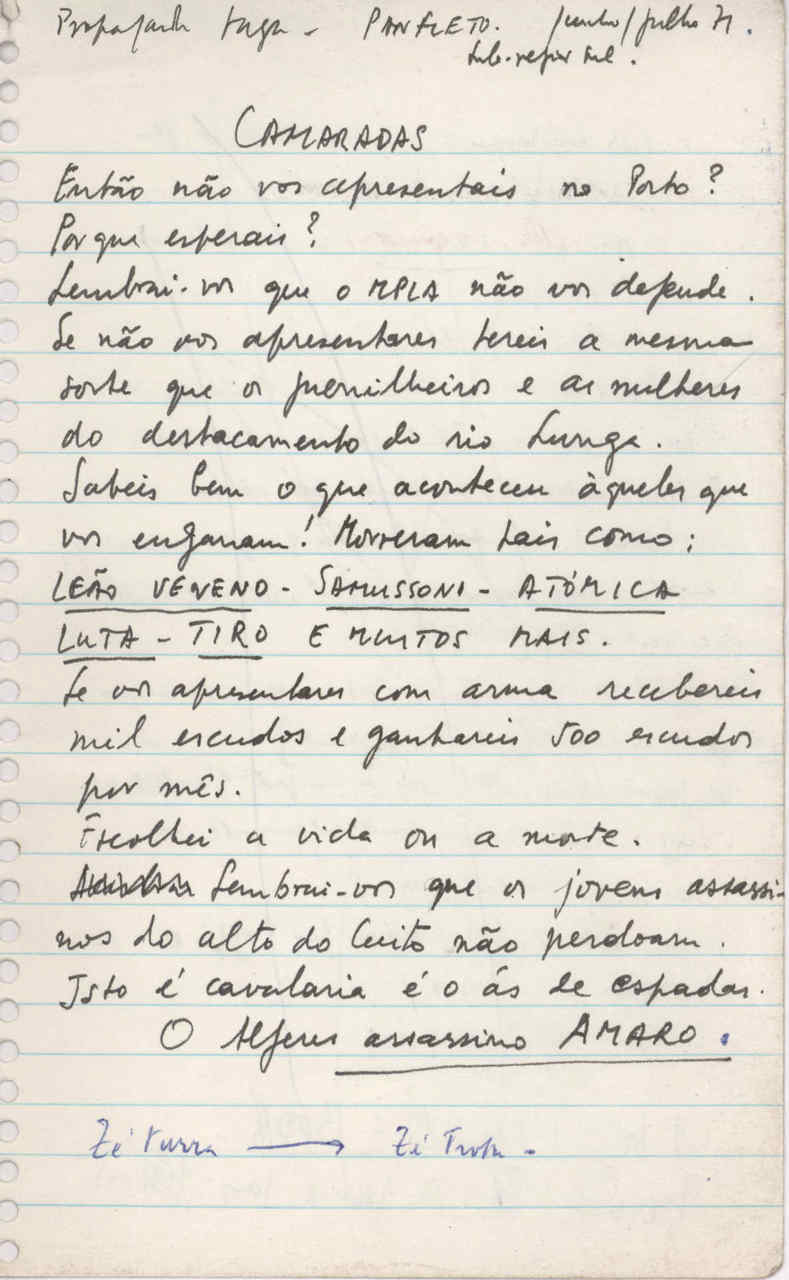 Propaganda tuga - PANFLETO. Junho/Julho 71.
Sub-região Sul.
CAMARADAS
Então não vos apresentais no Posto?
Porque esperais?
Lembrai-vos que o MPLA não vos defende.
Se não vos apresentares tereis a mesma
sorte que os guerrilheiros e as mulheres
do destacamento do rio Lunga.
Sabeis bem o que aconteceu àqueles que
vos enganam! Morreram tais como:
LEÃO VENENO - SAMUSSONI - ATÓMICA
LUTA - TIRO E MUITOS MAIS.
Se vos apresentares com arma recebereis
mil escudos e ganhareis 500 escudos
por mês.
Escolhei a vida ou a morte.
Lembrai-vos que os jovens assassi-
nos do alto do Cuito não perdoam.
Isto é cavalaria é o ás de espadas.
O Alferes assassino AMARO.
Zé Turra → Zé Tropa -